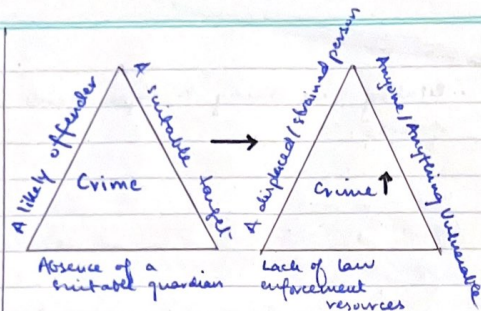 A likely offender
A suitable target
Crime
Absence of a
suitable guardian
A displaced/strained person
Anyone/Anything Vulnerable
Crime ↑
Lack of law
enforcement
resources